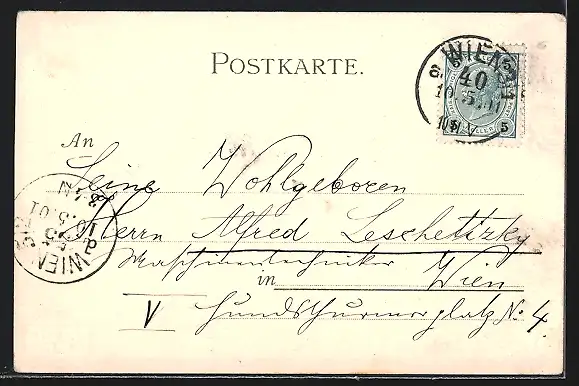 POSTKARTE.
WIEN
40
5
An
Seine Wohlgeboren
Herrn Alfred Leschetizky
Maschinentechniker
in Wien
V Hundsthurmerplatz No. 4.
WIEN
10.5.01